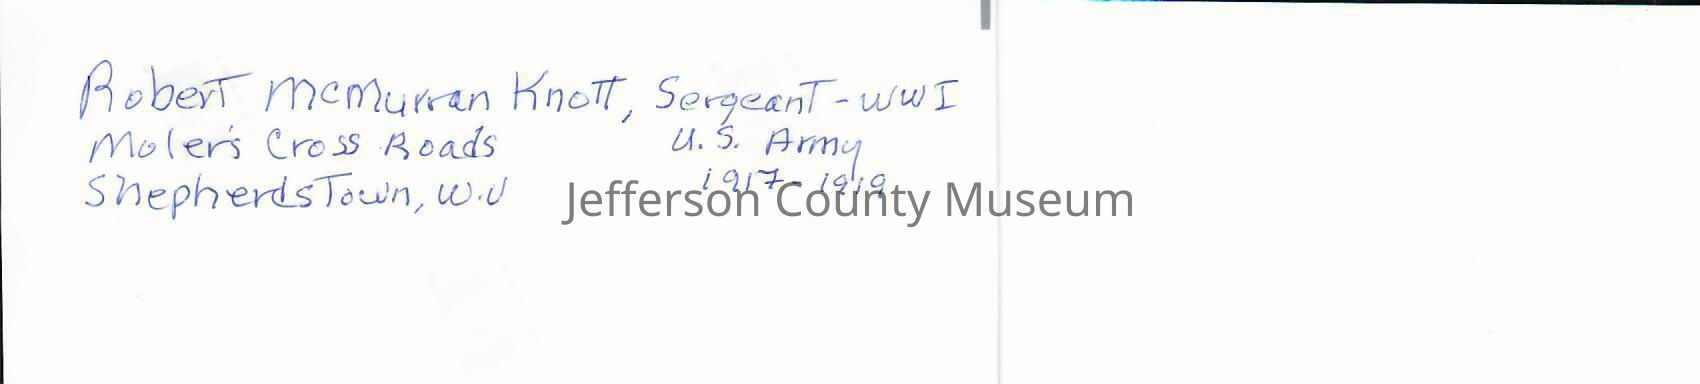 Robert McMurran Knott, Sergeant - WWI
Moler's Cross Roads U.S. Army
Shepherdstown, W.V 1917-1919
Jefferson County Museum